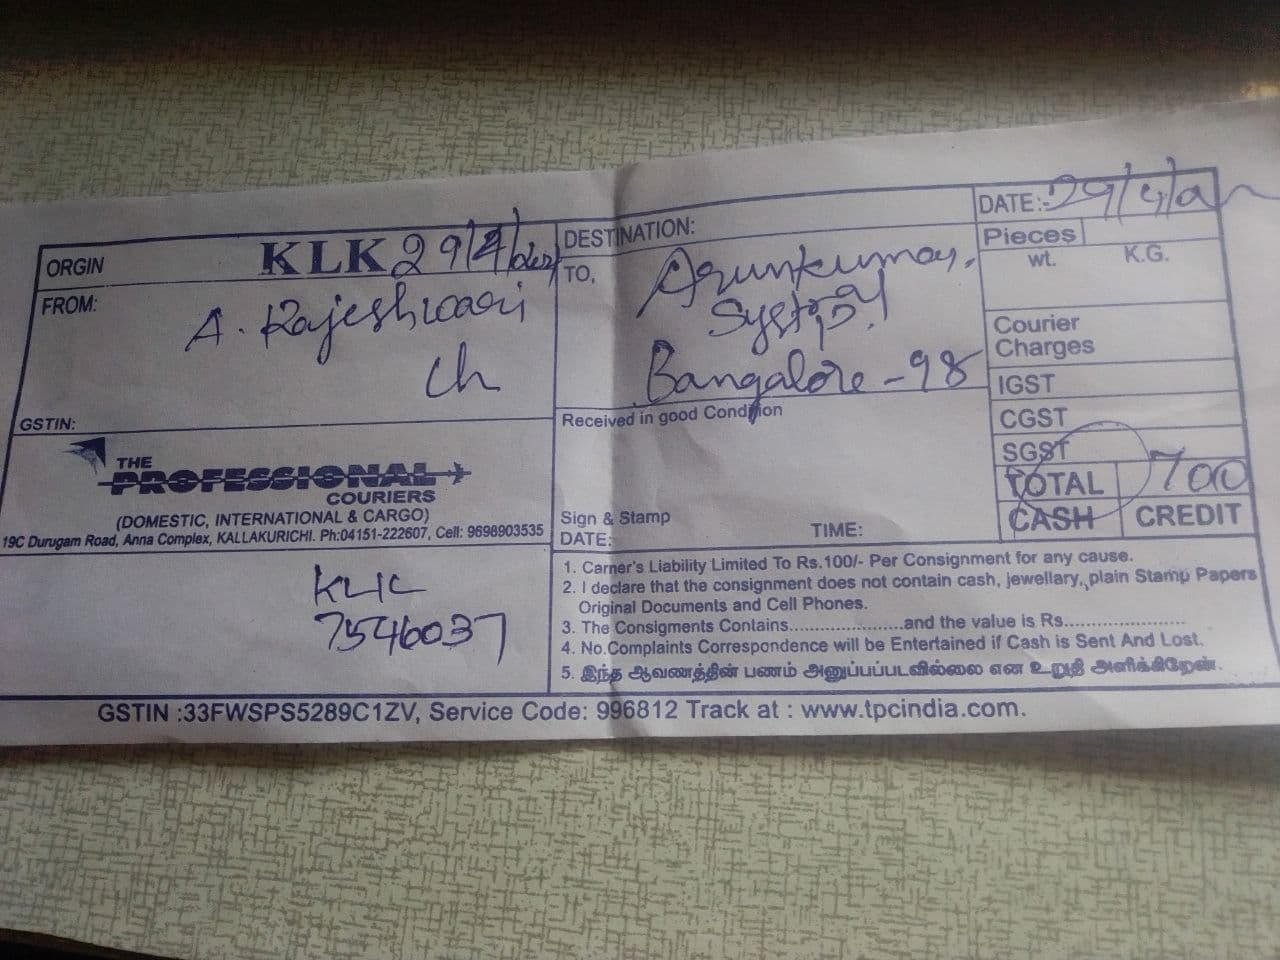 ORGIN
KLK 29/4/
FROM:
A. Rajeshwari
Ch
GSTIN:
THE
PROFESSIONAL
COURIERS
(DOMESTIC, INTERNATIONAL & CARGO)
19C Durugam Road, Anna Complex, KALLAKURICHI. Ph:04151-222607, Cell: 9698903535
KLK
7546037
DESTINATION:
TO,
Arunkumar,
Bangalore - 98
Received in good Condition
Sign & Stamp
DATE:
TIME:
DATE:- 29/4/
Pieces
wt. K.G.
Courier
Charges
IGST
CGST
SGST
TOTAL 700
CASH CREDIT
1. Carner's Liability Limited To Rs.100/- Per Consignment for any cause.
2. I declare that the consignment does not contain cash, jewellary, plain Stamp Papers
Original Documents and Cell Phones.
3. The Consigments Contains......................and the value is Rs.......................
4. No.Complaints Correspondence will be Entertained if Cash is Sent And Lost.
5. இந்த ஆவணத்தின் பணம் அனுப்பப்படவில்லை என உறுதி அளிக்கிறேன்.
GSTIN :33FWSPS5289C1ZV, Service Code: 996812 Track at : www.tpcindia.com.